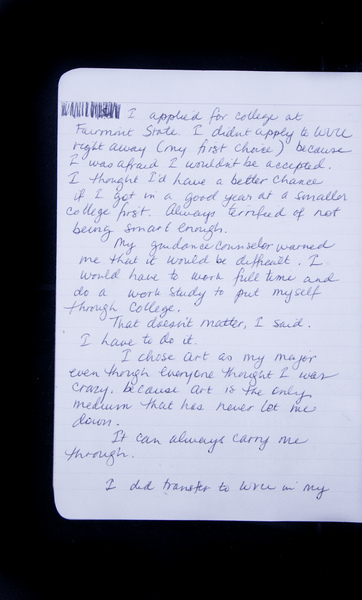 I applied for college at
Fairmont State. I didn't apply to WVU
right away (my first choice) because
I was afraid I wouldn't be accepted.
I thought I'd have a better chance
if I got in a good year at a smaller
college first. Always terrified of not
being smart enough.
My guidance counselor warned
me that it would be difficult. I
would have to work full time and
do a work study to put myself
through college.
That doesn't matter, I said.
I have to do it.
I chose art as my major
even though everyone thought I was
crazy, because art is the only
medium that has never let me
down.
It can always carry me
through.
I did transfer to WVU in my